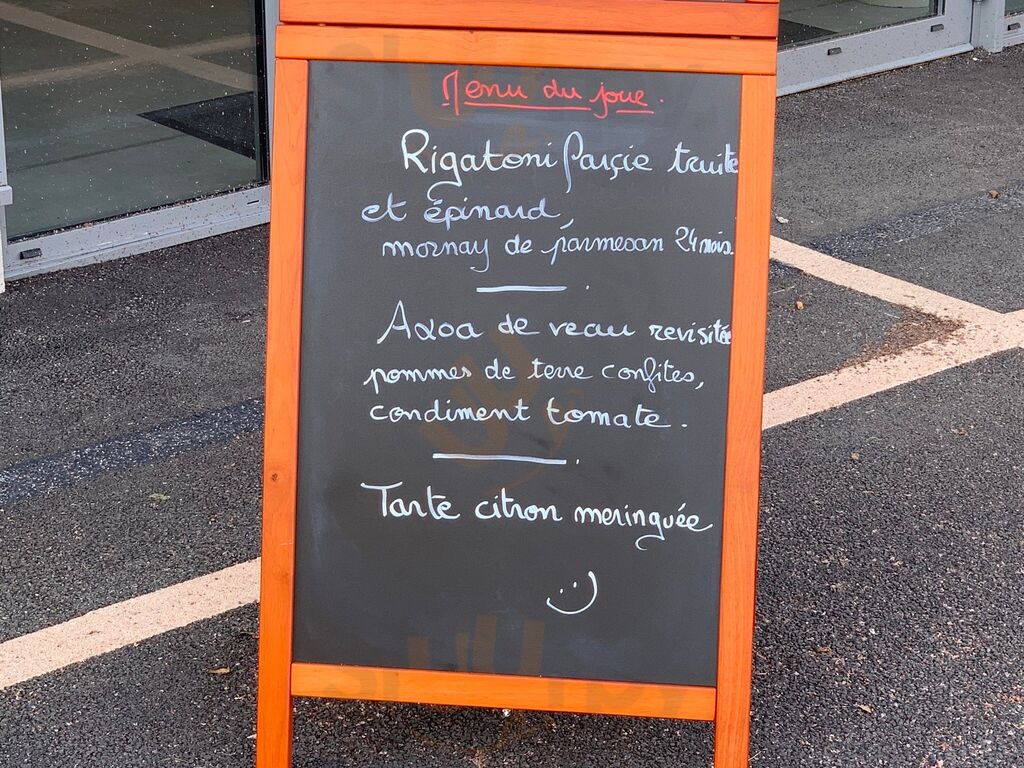 Menu du joue.
Rigatoni farçie truite
et épinard,
mornay de parmesan 24 mois.
Axoa de veau revisitée
pommes de terre confites,
condiment tomate.
Tarte citron meringuée